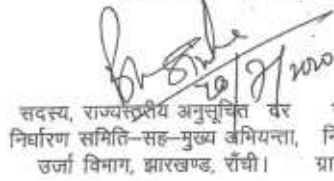 26/2/2020
सदस्य, राज्यस्तरीय अनुसूचित दर
निर्धारण समिति-सह-मुख्य अभियन्ता,
उर्जा विभाग, झारखण्ड, राँची।